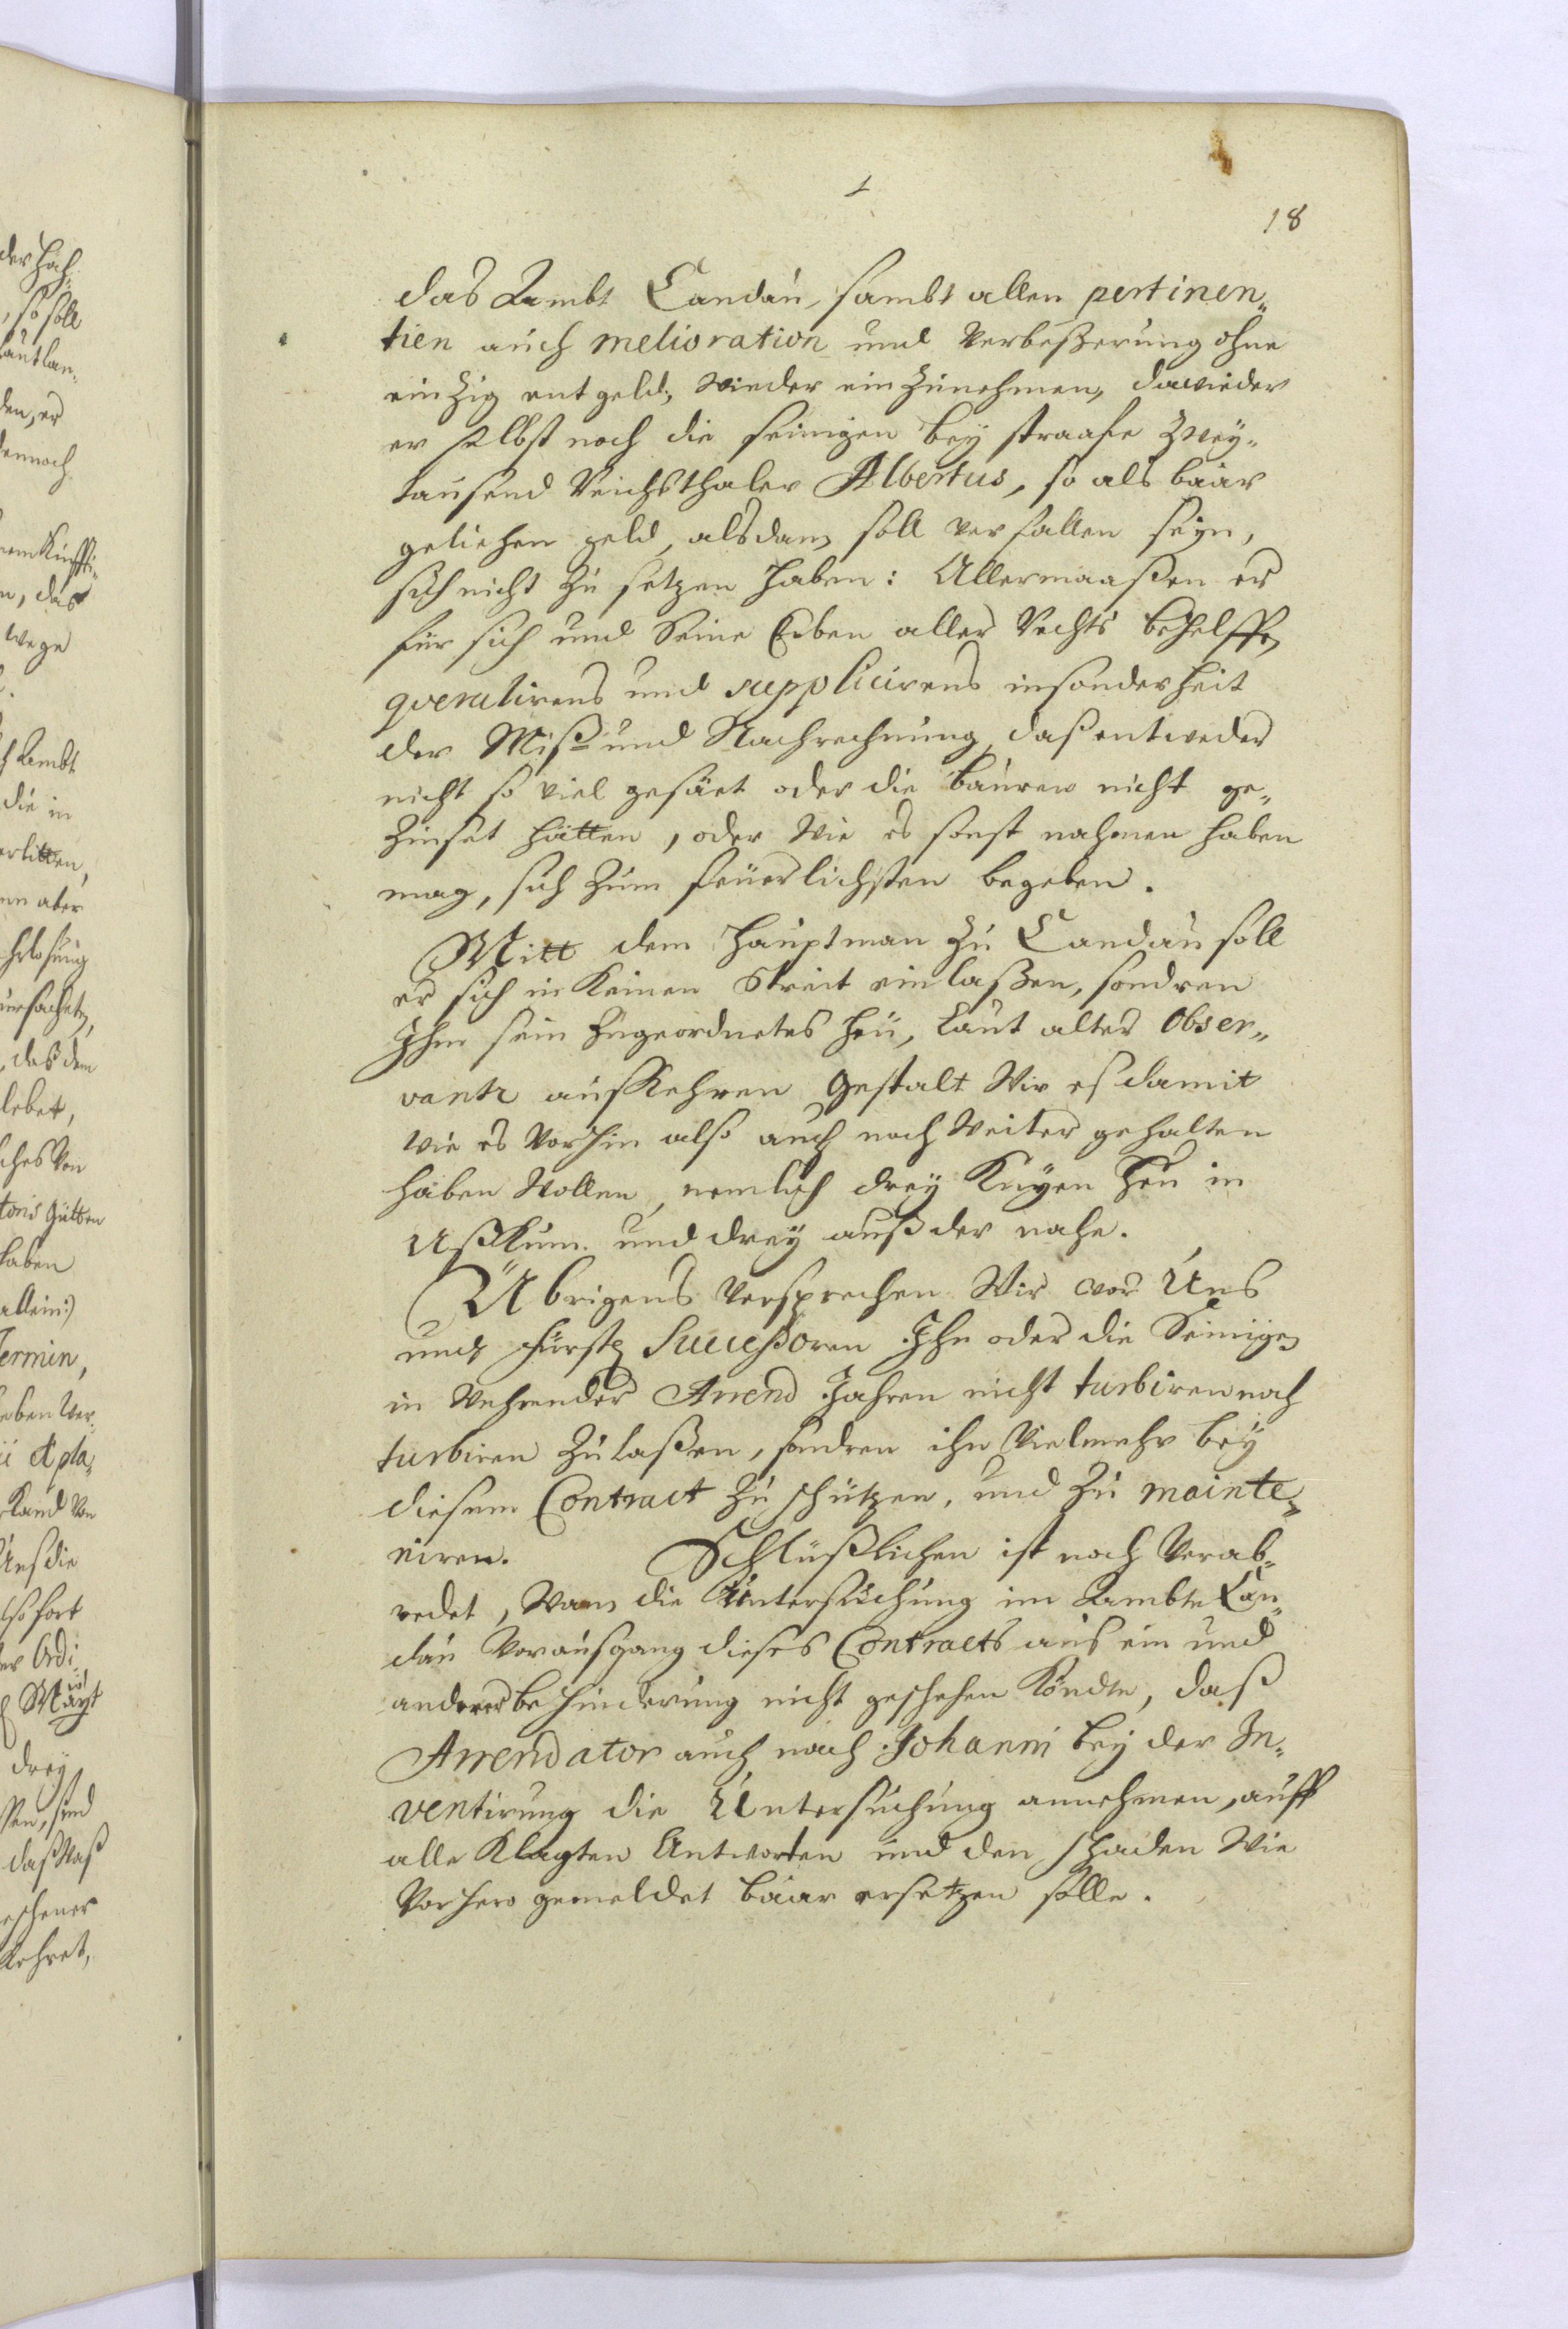 18
das Ambt Candau, sambt allen pertinen„
tien auch melioration und Verbeßerung ohne
einzig entgeld, wieder einzunehmen, dawieder
er selbst noch die seinigen bey straafe Zwey„
tausend Reichsthaler Albertus, so als baar
geliehen geld, alsdan soll verfallen seyn,
sich nicht zu setzen haben: Allermaaßen er
für sich und Seine Erben aller Rechts behelffe,
querulirens und supplicirens insonderheit
der Miß und Nachrechnung, daß entweder
nicht so viel gesäet oder die bauren nicht ge„
Zinset hätten, oder wie es sonst nahmen haben
mag, sich zum feüerlichsten begeben.
Mitt dem Hauptman zu Candau soll
er sich in keinen Streit einlaßen, sondren
Ihm sein zugeordnetes heü, laut alter Obser„
vantz auskehren gestalt Wir es damit
wie es Vorhin also auch noch Weiter gehalten
haben Wollen, nemlich drey Kuyen heu in
und drey auß der nahe.
Übrigens Versprechen Wir vor Uns
und fürstl Successoren Ihn oder die Seinigen
in Wehrender Arend Jahren nicht turbiren noch
turbiren zulaßen, sondren ihn Vielmehr bey
diesem Contract zu schützen, und zu mainte„
niren. Schlüßlichen ist noch Verab„
redet, Wan die Untersuchung im Ambte Can„
dau Vor ausgang dieses Contracts aus ein und
anderer behinderung nicht geschehen köndte, daß
Arrendator auch nach Johanni bey der In„
ventirung die Untersuchung annehmen, auff
alle Klagten Antworten und den schaden Wie
Vorhero gemeldet baar ersetzen solle.